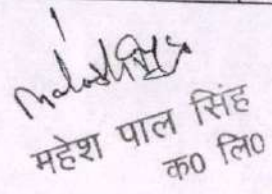 महेश पाल सिंह
क0 लि0